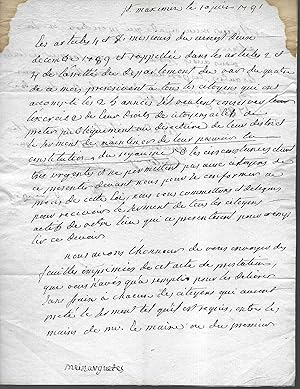 St maximin le 10 juin 1791
les articles 4 et 8 messieurs du decret du
decembre 1789 et rappellée dans les articles 2 et
4 de l'arrêté du departement du var du quatre
de ce mois prescrivent a tous les citoyens qui ont
accomply les 25 années et veulent conserver
l'exercice de leur droits de citoyen actif de
preter publiquement au directoire de leur district
le serment de maintenir de leur pouvoir la
constitution du royaume les circonstances etant
tres urgentes et ne permettent pas aux citoyens de
se presenter devant nous pour se conformer au
de cette loy, nous vous commettons et deleguons
pour recevoir le serment de tous les citoyens
actifs de votre lieu qui se presenteront pour remplir
ce devoir
nous avons l'honneur de vous envoyer des
feuilles imprimées de cet acte de prestation,
que vous n'aurés qu'a remplir pour les delivrer
sans frais a chacun des citoyens qui auront
preté le serment tel qu'il est requis, entre les
mains de mr le maire ou du premier